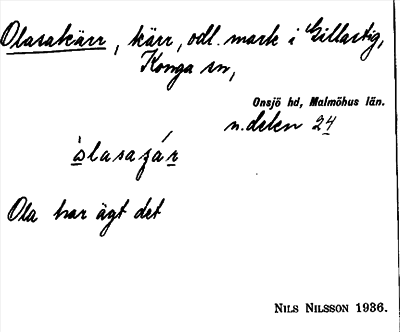 Olasakärr, kärr, odl. mark i Gillastig,
Konga sn,
Onsjö hd, Malmöhus län.
n. delen 24
Ola har ägt det
NILS NILSSON 1936.